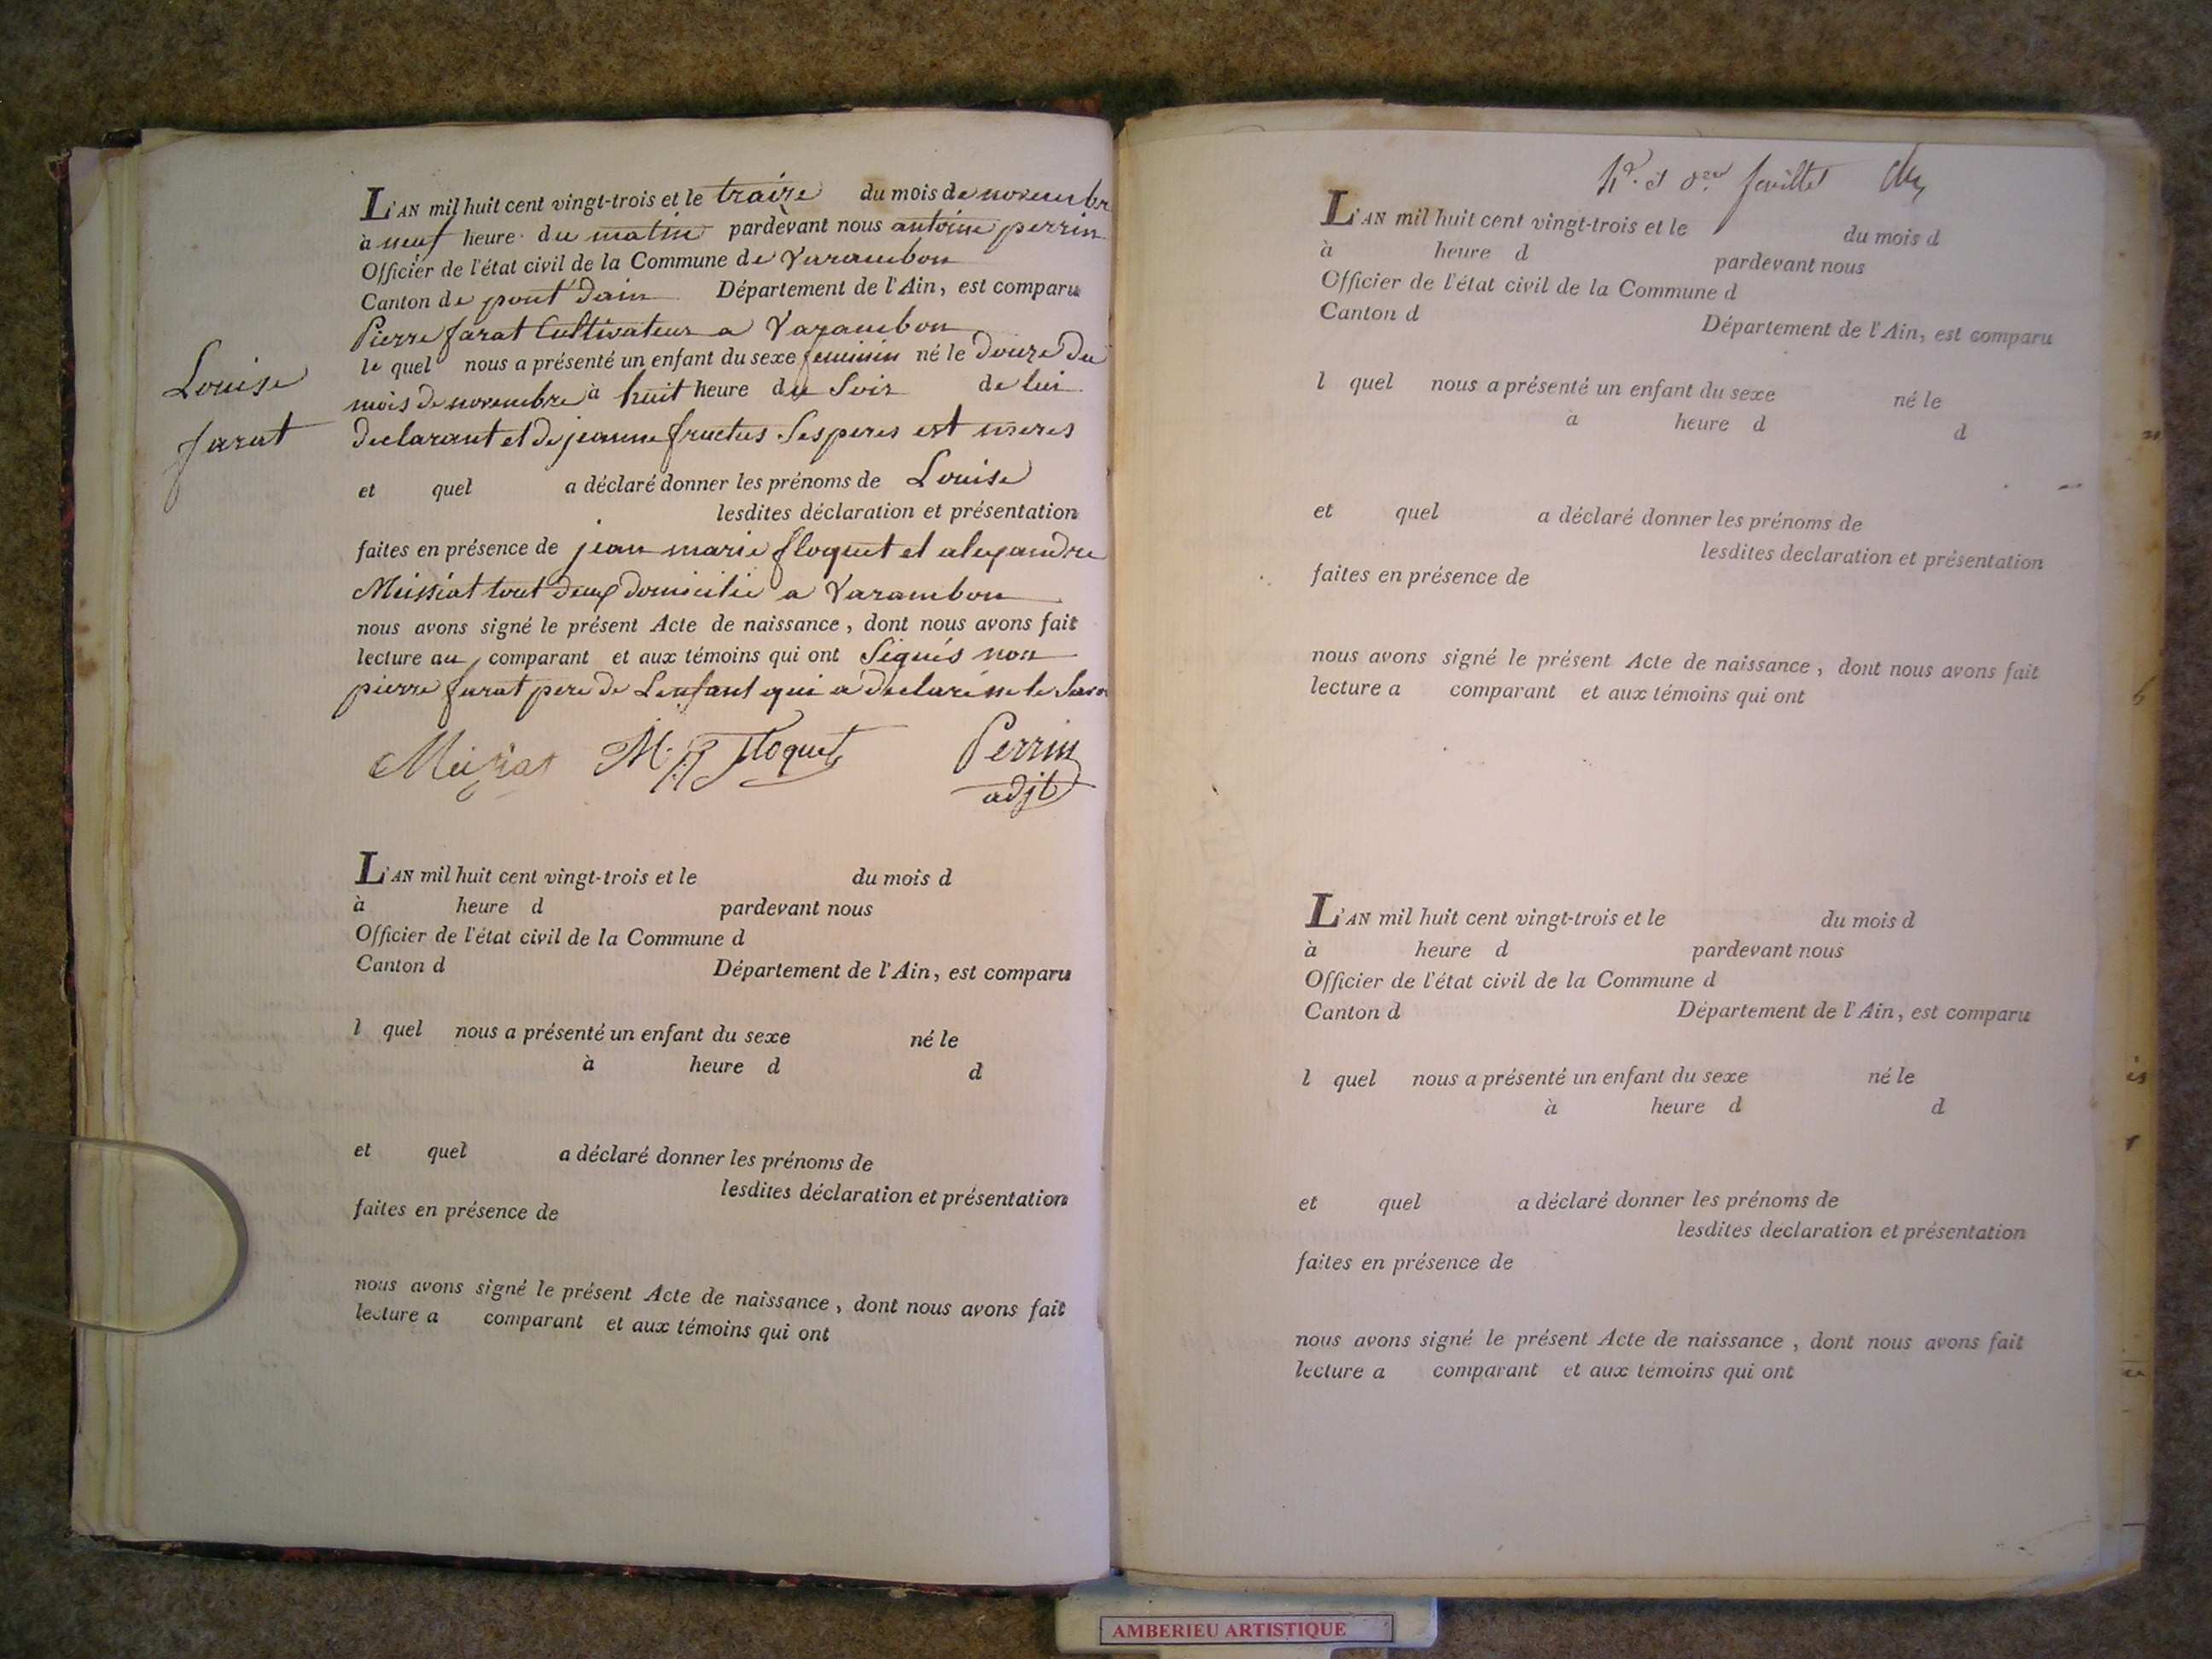 L'AN mil huit cent vingt-trois et le traize du mois de novembr
à neuf heure du matin pardevant nous antoine perrin
Officier de l'état civil de la Commune de Varambon
Canton de pont dain Département de l'Ain, est comparu
Pierre farat Cultivateur a Varambon
le quel nous a présenté un enfant du sexe feminin né le douze du
mois de novembre à huit heure du Soir de lui
declarant et de jeanne fructus Ses peres est meres
et quel a déclaré donner les prénoms de Louise
lesdites déclaration et présentation
faites en présence de jean marie floquet et alexandre
Meissiat tout deux domicilié a Varambon
nous avons signé le présent Acte de naissance, dont nous avons fait
lecture au comparant et aux témoins qui ont Signés non
pierre farat pere de Lenfant qui a declaré ne le Savoi
Louise
farat
M. Floquet Perrin
adjt
L'AN mil huit cent vingt-trois et le du mois d
à heure d pardevant nous
Officier de l'état civil de la Commune d
Canton d Département de l'Ain, est comparu
l quel nous a présenté un enfant du sexe né le
à heure d d
et quel a déclaré donner les prénoms de
lesdites déclaration et présentation
faites en présence de
nous avons signé le présent Acte de naissance, dont nous avons fait
lecture a comparant et aux témoins qui ont
feuillet
L'AN mil huit cent vingt-trois et le du mois d
à heure d pardevant nous
Officier de l'état civil de la Commune d
Canton d Département de l'Ain, est comparu
l quel nous a présenté un enfant du sexe né le
à heure d d
et quel a déclaré donner les prénoms de
lesdites declaration et présentation
faites en présence de
nous avons signé le présent Acte de naissance, dont nous avons fait
lecture a comparant et aux témoins qui ont
L'AN mil huit cent vingt-trois et le du mois d
à heure d pardevant nous
Officier de l'état civil de la Commune d
Canton d Département de l'Ain, est comparu
l quel nous a présenté un enfant du sexe né le
à heure d d
et quel a déclaré donner les prénoms de
lesdites declaration et présentation
faites en présence de
nous avons signé le présent Acte de naissance, dont nous avons fait
lecture a comparant et aux témoins qui ont
AMBERIEU ARTISTIQUE